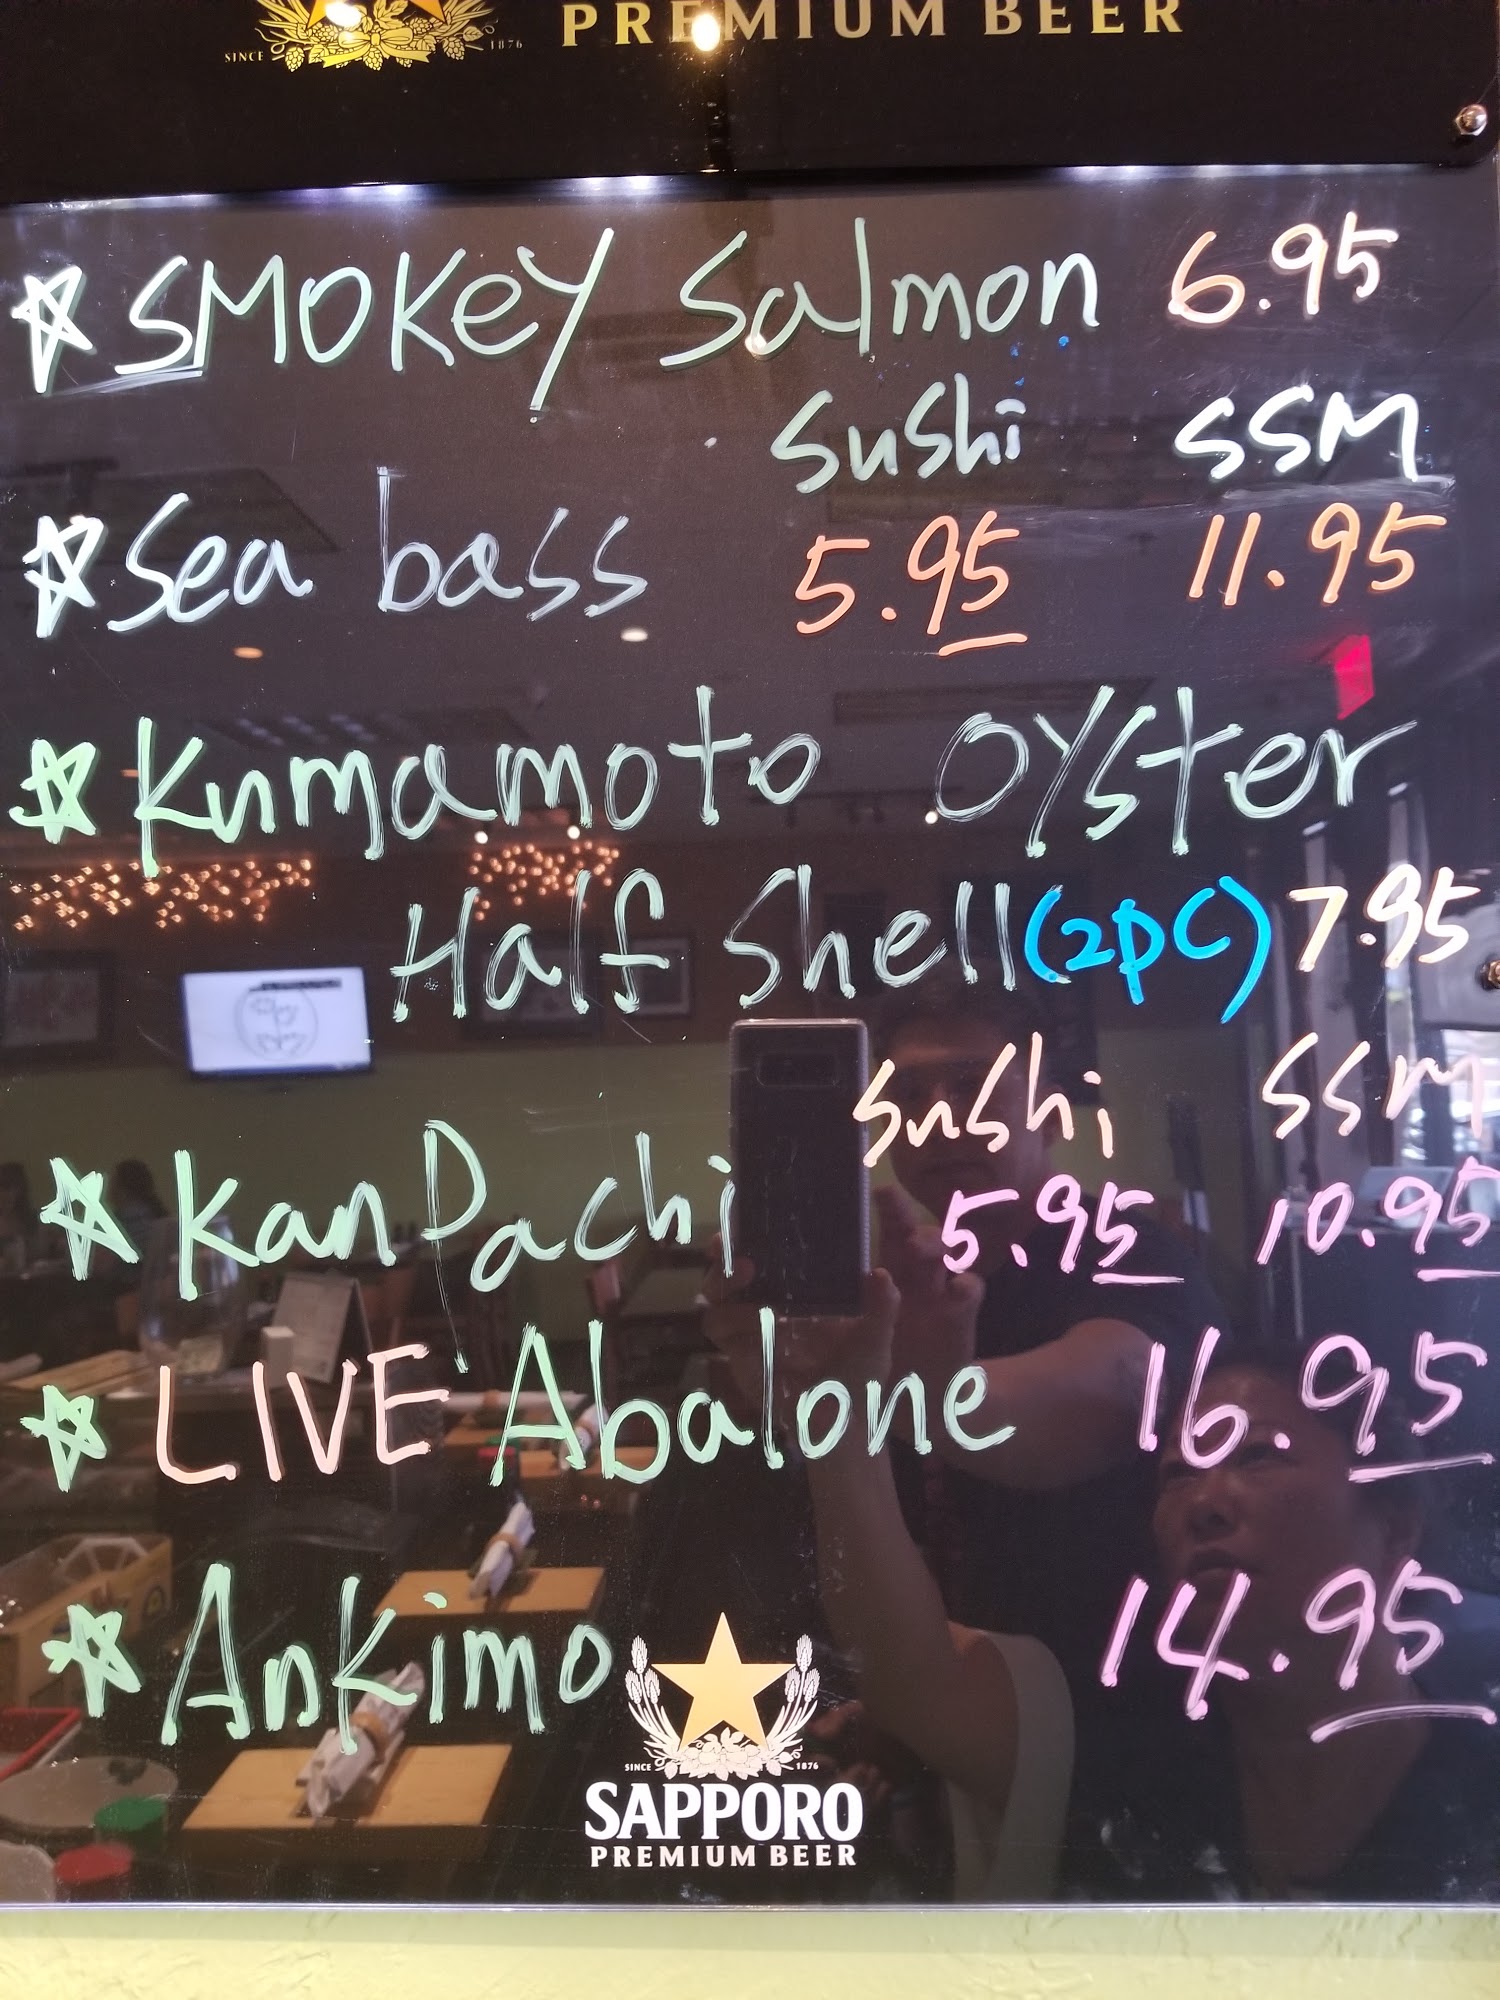 SINCE 1876 PREMIUM BEER
SMOKeY Salmon 6.95
Sushi SSM
Sea bass 5.95 11.95
Kumamoto Oyster
Half Shell (2pc) 7.95
Sushi SSM
KanPachi 5.95 10.95
LIVE Abalone 16.95
Ankimo 14.95
SINCE 1876
SAPPORO
PREMIUM BEER